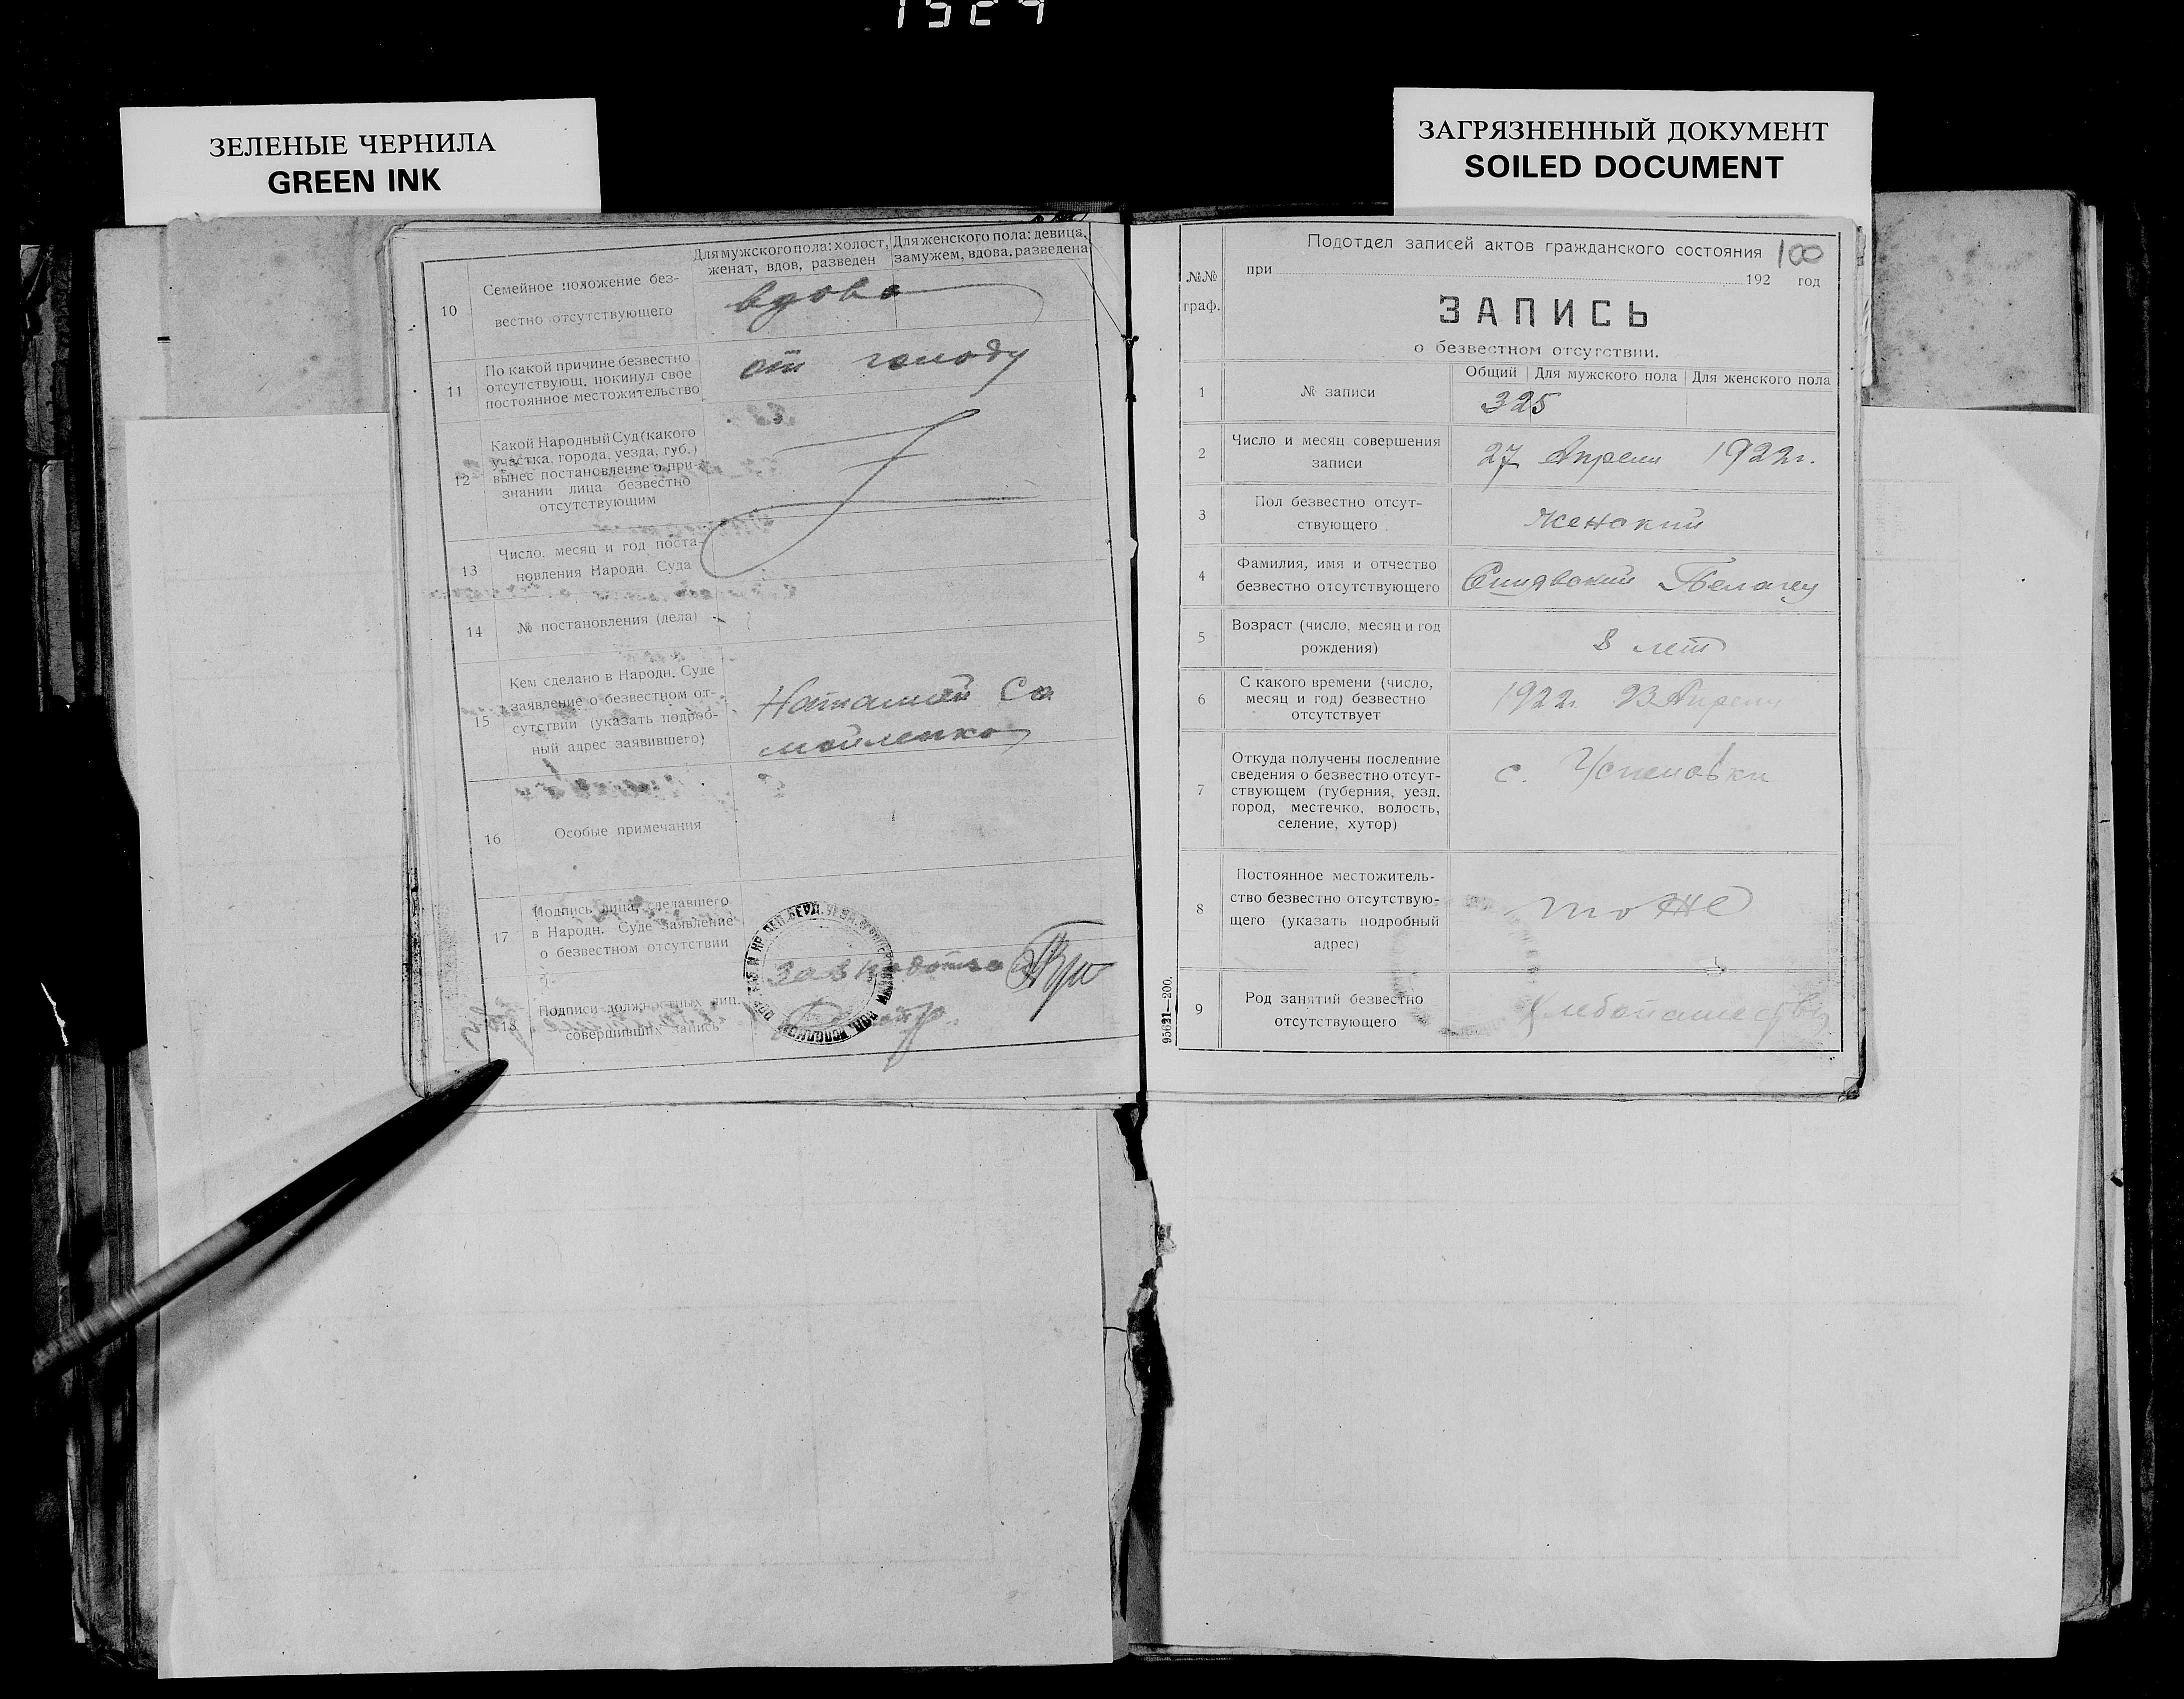 1924
ЗЕЛЕНЫЕ ЧЕРНИЛА
GREEN INK
ЗАГРЯЗНЕННЫЙ ДОКУМЕНТ
SOILED DOCUMENT
Для мужского пола: холост,
женат, вдов, разведен
Для женского пола: девица,
замужем, вдова, разведена
10
Семейное положение без-
вестно отсутствующего
вдова
11
По какой причине безвестно
отсутствующ. покинул свое
постоянное местожительство
от голоду
12
Какой Народный Суд (какого
участка, города, уезда, губ.)
вынес постановление о при-
знании лица безвестно
отсутствующим
13
Число, месяц и год поста-
новления Народн. Суда
14
№ постановления (дела)
15
Кем сделано в Народн. Суде
заявление о безвестном от-
сутствии (указать подроб-
ный адрес заявившего)
Наталией Са
мойленко
16
Особые примечания
17
Подпись лица, сделавшего
в Народн. Суде заявление
о безвестном отсутствии
18
Подписи должностных лиц,
совершивших запись
Зав
Подотдел записей актов гражданского состояния
100
при
192 год
№№
граф.
ЗАПИСЬ
о безвестном отсутствии.
1
№ записи
Общий
Для мужского пола
Для женского пола
325
2
Число и месяц совершения
записи
27 Апреля 1922г.
3
Пол безвестно отсут-
ствующего
Женский
4
Фамилия, имя и отчество
безвестно отсутствующего
5
Возраст (число, месяц и год
рождения)
8 лет
6
С какого времени (число,
месяц и год) безвестно
отсутствует
1922г. 23 Апреля
7
Откуда получены последние
сведения о безвестно отсут-
ствующем (губерния, уезд,
город, местечко, волость,
селение, хутор)
с. Успеновки
8
Постоянное местожитель-
ство безвестно отсутствую-
щего (указать подробный
адрес)
тоже
9
Род занятий безвестно
отсутствующего
95621—200.